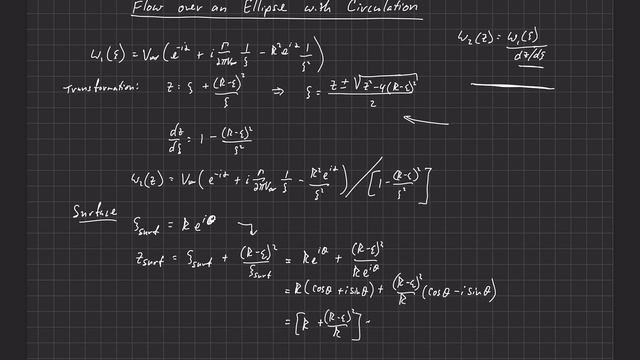 Flow over an Ellipse with Circulation
w₂(z) = w₁(ξ) / dz/dξ
w₁(ξ) = V∞(e^-iα + i Γ/2πV∞ 1/ξ - R²e^iα 1/ξ²)
Transformation: z = ξ + (R-ε)²/ξ ⇒ ξ = z ± √z²-4(R-ε)² / 2
dz/dξ = 1 - (R-ε)²/ξ²
w₂(z) = V∞(e^-iα + i Γ/2πV∞ 1/ξ - R²e^iα/ξ²) / [1 - (R-ε)²/ξ²]
Surface
ξsurf = Re^iθ
zsurf = ξsurf + (R-ε)²/ξsurf = Re^iθ + (R-ε)²/Re^iθ
= R(cosθ + i sinθ) + (R-ε)²/R (cosθ - i sinθ)
= [R + (R-ε)²/R]